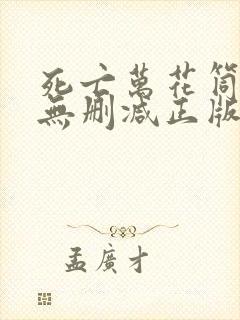 死亡萬花筒
無刪減正版
孟廣才